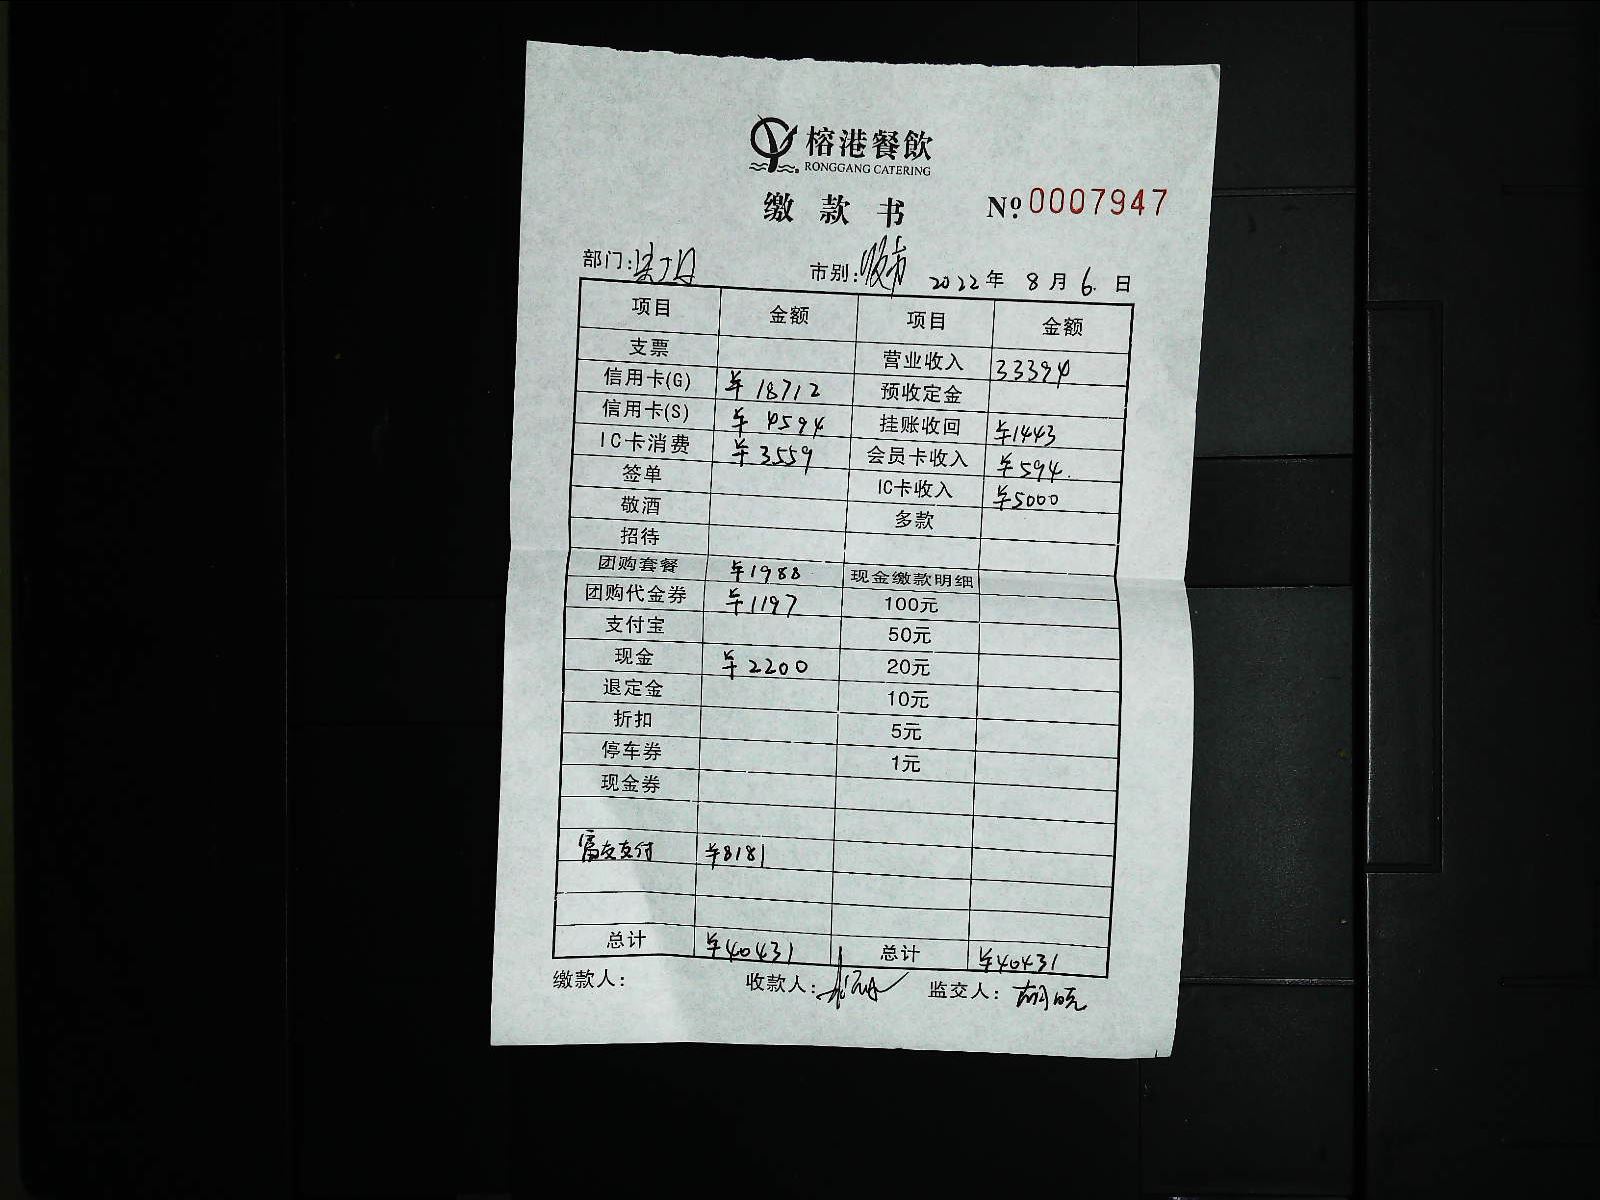 榕港餐飲
RONGGANG CATERING
缴款书 Nº 0007947
部门: 市别: 2022年 8月 6日
项目 金额 项目 金额
支票 营业收入 33394
信用卡(G) ¥18712 预收定金
信用卡(S) ¥4594 挂账收回 ¥1443
IC卡消费 ¥3559 会员卡收入 ¥594
签单 IC卡收入 ¥5000
敬酒 多款
招待
团购套餐 ¥1988 现金缴款明细
团购代金券 ¥1197 100元
支付宝 50元
现金 ¥2200 20元
退定金 10元
折扣 5元
停车券 1元
现金券
富友支付 ¥8181
总计 ¥40431 总计 ¥40431
缴款人: 收款人: 监交人: 胡晓